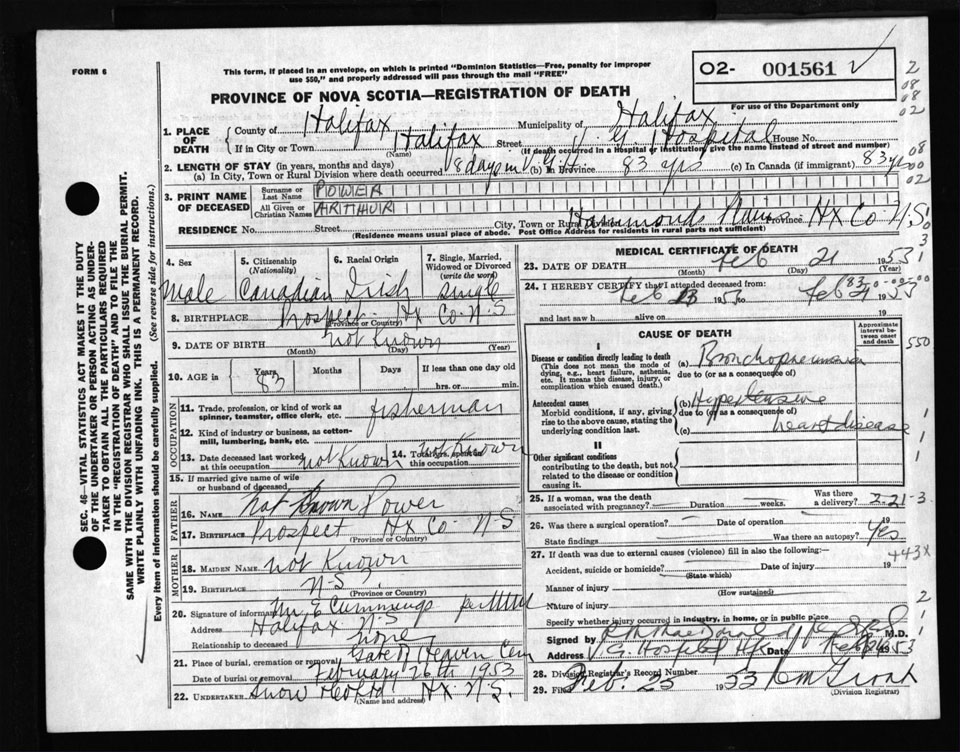 FORM 6
This form, if placed in an envelope, on which is printed "Dominion Statistics—Free, penalty for improper
use $50," and properly addressed will pass through the mail "FREE"
02- 001561
For use of the Department only
PROVINCE OF NOVA SCOTIA—REGISTRATION OF DEATH
1. PLACE OF DEATH
County of Halifax Municipality of Halifax
If in City or Town Halifax Street V. G. Hospital House No.
(Name) (If death occurred in a Hospital or Institution, give the name instead of street and number)
2. LENGTH OF STAY (in years, months and days)
(a) In City, Town or Rural Division where death occurred 8 days in V.G. (b) In Province 83 yrs (c) In Canada (if immigrant) 83 yrs
3. PRINT NAME OF DECEASED
Surname or Last Name POWER
All Given or Christian Names ARTHUR
RESIDENCE No. Street City, Town or Rural Division Hammonds Plains Province Hx Co. N.S.
(Residence means usual place of abode. Post Office Address for residents in rural parts not sufficient)
4. Sex Male
5. Citizenship (Nationality) Canadian
6. Racial Origin Irish
7. Single, Married, Widowed or Divorced (write the word) single
8. BIRTHPLACE Prospect Hx Co. N S
(Province or Country)
9. DATE OF BIRTH not Known
(Month) (Day) (Year)
10. AGE in Years 83 Months Days If less than one day old
hrs. or min.
OCCUPATION
11. Trade, profession, or kind of work as spinner, teamster, office clerk, etc. fisherman
12. Kind of industry or business, as cotton-mill, lumbering, bank, etc.
13. Date deceased last worked at this occupation not Known
14. Total yrs. spent in this occupation not Known
15. If married give name of wife or husband of deceased
FATHER
16. Name Not Known Power
17. BIRTHPLACE Prospect Hx Co. N-S
(Province or Country)
MOTHER
18. MAIDEN NAME not Known
19. BIRTHPLACE N-S.
(Province or Country)
20. Signature of informant Mr E Cummings per
Address Halifax N.S
Relationship to deceased none
21. Place of burial, cremation or removal Gate of Heaven Cem
Date of burial or removal February 26th 1953
22. UNDERTAKER Snow Hx. N.S.
(Name and address)
MEDICAL CERTIFICATE OF DEATH
23. DATE OF DEATH Feb 21 1953
(Month) (Day) (Year)
24. I HEREBY CERTIFY that I attended deceased from:
Feb 13 1953 to Feb 21 1953
and last saw h alive on 19
CAUSE OF DEATH
Approximate interval between onset and death
I
Disease or condition directly leading to death
(This does not mean the mode of dying, e.g., heart failure, asthenia, etc. It means the disease, injury, or complication which caused death.)
(a) Bronchopneumonia
due to (or as a consequence of)
Antecedent causes
Morbid conditions, if any, giving rise to the above cause, stating the underlying condition last.
(b) Hypertensive
due to (or as a consequence of)
(c) heart disease
II
Other significant conditions
contributing to the death, but not related to the disease or condition causing it.
25. If a woman, was the death associated with pregnancy? Duration weeks. Was there a delivery?
2-21-3
26. Was there a surgical operation? Date of operation 19
State findings Was there an autopsy? Yes
27. If death was due to external causes (violence) fill in also the following:—
Accident, suicide or homicide? Date of injury 19
(State which)
443X
Manner of injury
(How sustained)
Nature of injury
Specify whether injury occurred in industry, in home, or in public place
Signed by M.D.
Address V G. Hospital Hfx Date Feb 1953
28. Division Registrar's Record Number
29. Filed Feb. 25 1953
(Division Registrar)
SEC. 46—VITAL STATISTICS ACT MAKES IT THE DUTY
OF THE UNDERTAKER OR PERSON ACTING AS UNDER-
TAKER TO OBTAIN ALL THE PARTICULARS REQUIRED
IN THE "REGISTRATION OF DEATH" AND TO FILE THE
SAME WITH THE DIVISION REGISTRAR WHO SHALL ISSUE THE BURIAL PERMIT.
WRITE PLAINLY WITH UNFADING INK. THIS IS A PERMANENT RECORD.
Every item of information should be carefully supplied. (See reverse side for instructions.)
2
08
08
02
08
00
02
550